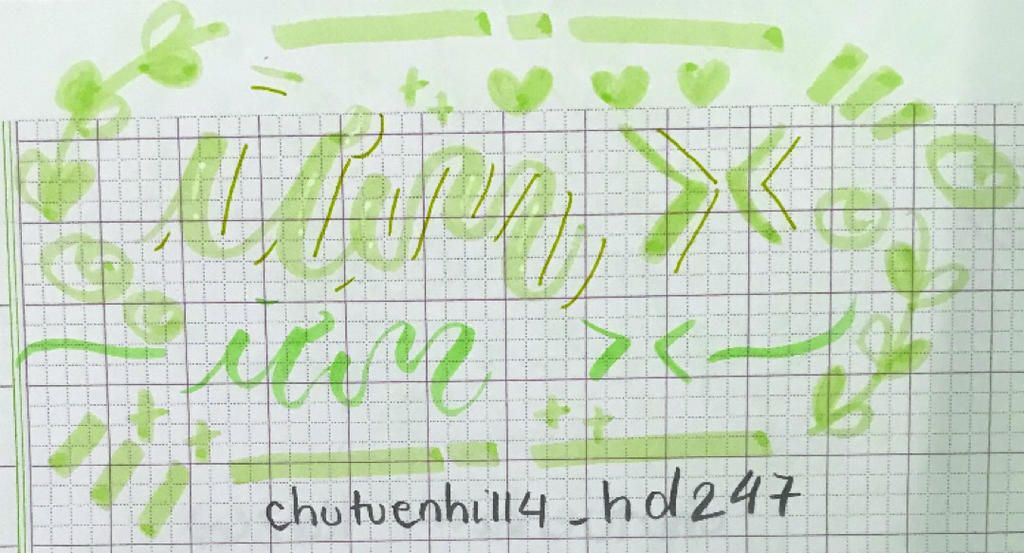 ừm ><
ừm ><
chutuenhi114_hd247